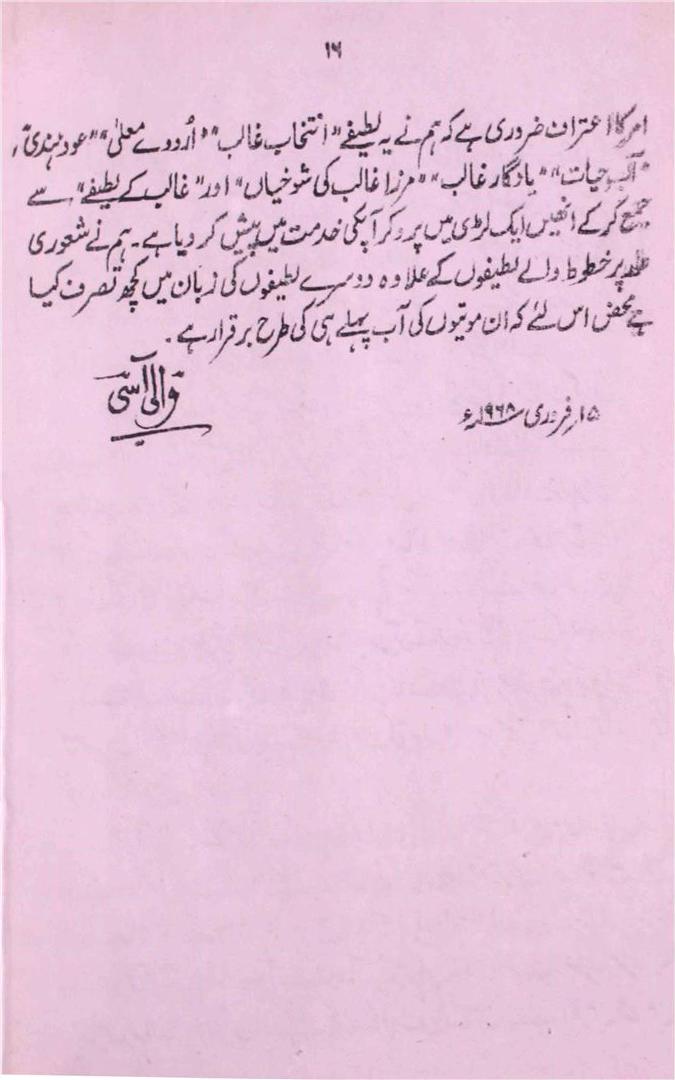 ۱۶
امر کا اعتراف ضروری ہے کہ ہم نے یہ لطیفے "انتخاب غالب" "اُردوے معلیٰ" "عود ہندی"،
"آب حیات" "یادگار غالب" "مرزا غالب کی شوخیاں" اور "غالب کے لطیفے" سے
جمع کر کے انھیں ایک لڑی میں پرو کر آپکی خدمت میں پیش کر دیا ہے۔ ہم نے شعوری
طور پر خطوط والے لطیفوں کے علاوہ دوسرے لطیفوں کی زبان میں کچھ تصرف کیا
ہے محض اس لئے کہ ان موتیوں کی آب پہلے ہی کی طرح برقرار ہے۔
والی آسی
۱۵ر فروری ۱۹۶۸ء